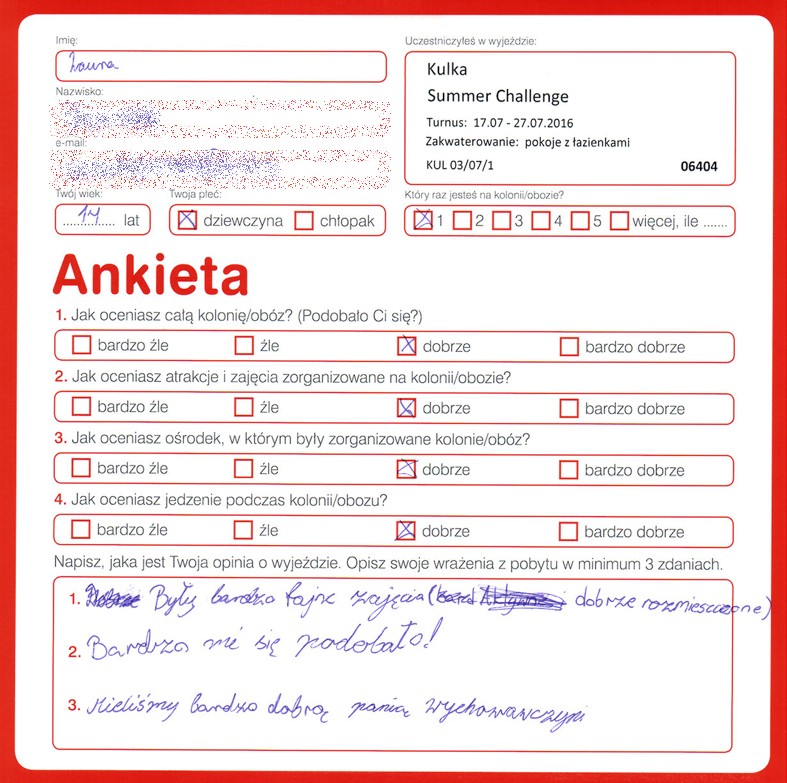 Imię:
Uczestniczyłeś w wyjeździe:
Kulka
Summer Challenge
Turnus: 17.07 - 27.07.2016
Zakwaterowanie: pokoje z łazienkami
KUL 03/07/1 06404
Nazwisko:
e-mail:
Twój wiek:
14 lat
Twoja płeć:
dziewczyna chłopak
Który raz jesteś na kolonii/obozie?
1 2 3 4 5 więcej, ile .......
Ankieta
1. Jak oceniasz całą kolonię/obóz? (Podobało Ci się?)
bardzo źle źle dobrze bardzo dobrze
2. Jak oceniasz atrakcje i zajęcia zorganizowane na kolonii/obozie?
bardzo źle źle dobrze bardzo dobrze
3. Jak oceniasz ośrodek, w którym były zorganizowane kolonie/obóz?
bardzo źle źle dobrze bardzo dobrze
4. Jak oceniasz jedzenie podczas kolonii/obozu?
bardzo źle źle dobrze bardzo dobrze
Napisz, jaka jest Twoja opinia o wyjeździe. Opisz swoje wrażenia z pobytu w minimum 3 zdaniach.
1. Były bardzo fajne zajęcia ( dobrze rozmieszczone)
2. Bardzo mi się podobało!
3. Mieliśmy bardzo dobrą panią wychowawczyni